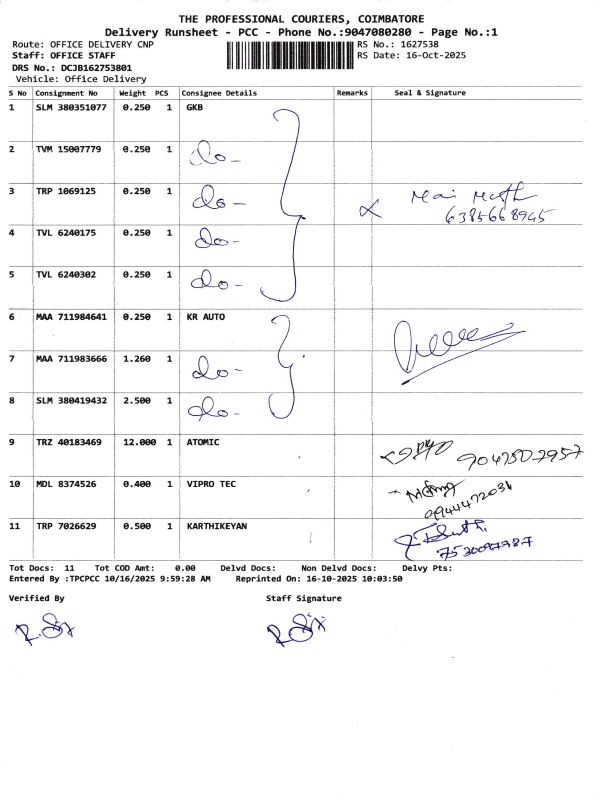 THE PROFESSIONAL COURIERS, COIMBATORE
Delivery Runsheet - PCC - Phone No.:9047080280 - Page No.:1
Route: OFFICE DELIVERY CNP RS No.: 1627538
Staff: OFFICE STAFF RS Date: 16-Oct-2025
DRS No.: DCJB162753801
Vehicle: Office Delivery
S No Consignment No Weight PCS Consignee Details Remarks Seal & Signature
1 SLM 380351077 0.250 1 GKB
2 TVM 15007779 0.250 1 do-
3 TRP 1069125 0.250 1 do-
6385668945
4 TVL 6240175 0.250 1 do-
5 TVL 6240302 0.250 1 do-
6 MAA 711984641 0.250 1 KR AUTO
7 MAA 711983666 1.260 1 do-
8 SLM 380419432 2.500 1 do-
9 TRZ 40183469 12.000 1 ATOMIC
10 MDL 8374526 0.400 1 VIPRO TEC
11 TRP 7026629 0.500 1 KARTHIKEYAN
Tot Docs: 11 Tot COD Amt: 0.00 Delvd Docs: Non Delvd Docs: Delvy Pts:
Entered By :TPCPCC 10/16/2025 9:59:28 AM Reprinted On: 16-10-2025 10:03:50
Verified By Staff Signature